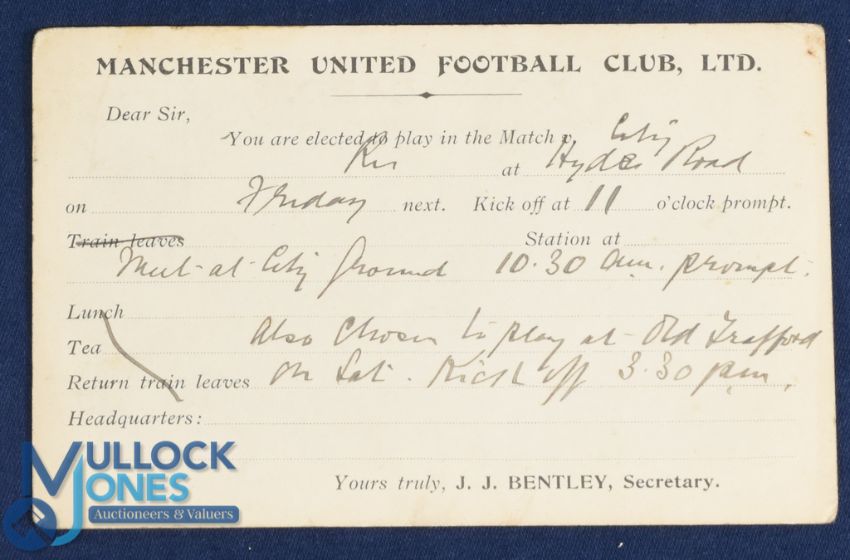 MANCHESTER UNITED FOOTBALL CLUB, LTD.
Dear Sir,
You are elected to play in the Match v. City
Res at Hyde Road
on Friday next. Kick off at 11 o'clock prompt.
Train leaves Station at
Meet at City Ground 10.30 a.m. prompt.
Lunch
Also chosen to play at Old Trafford
Tea
Return train leaves on Sat. Kick off 3.30 p.m.
Headquarters:
Yours truly, J. J. BENTLEY, Secretary.
MULLOCK
JONES
Auctioneers & Valuers